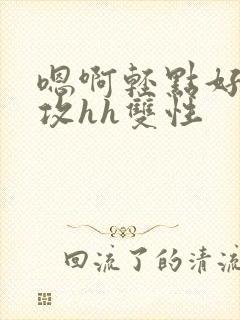 嗯啊輕點好
攻hh雙性
回流了的清流